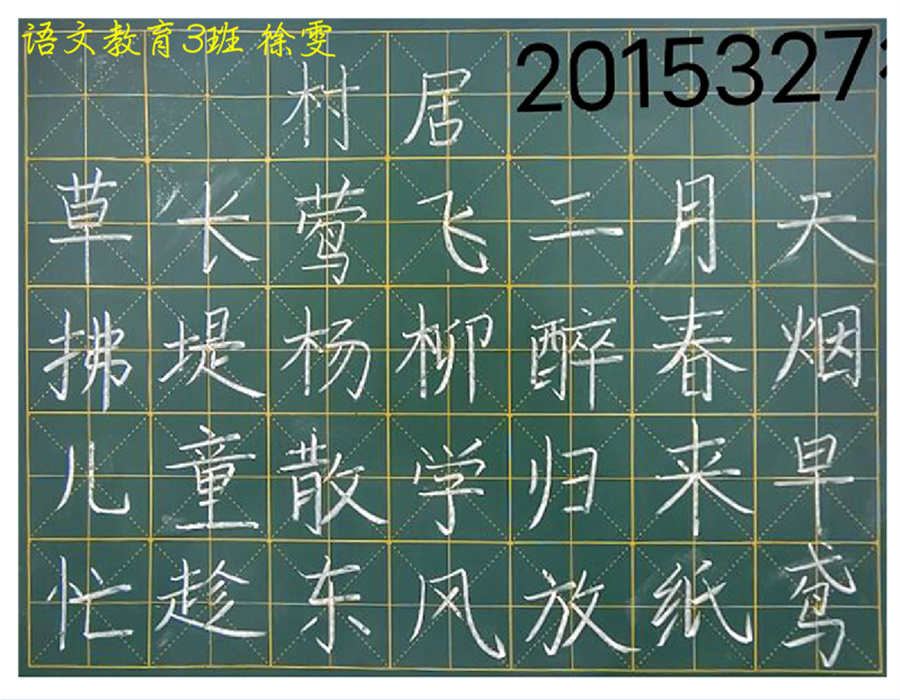 语文教育3班 徐雯
2015327
村居
草长莺飞二月天
拂堤杨柳醉春烟
儿童散学归来早
忙趁东风放纸鸢